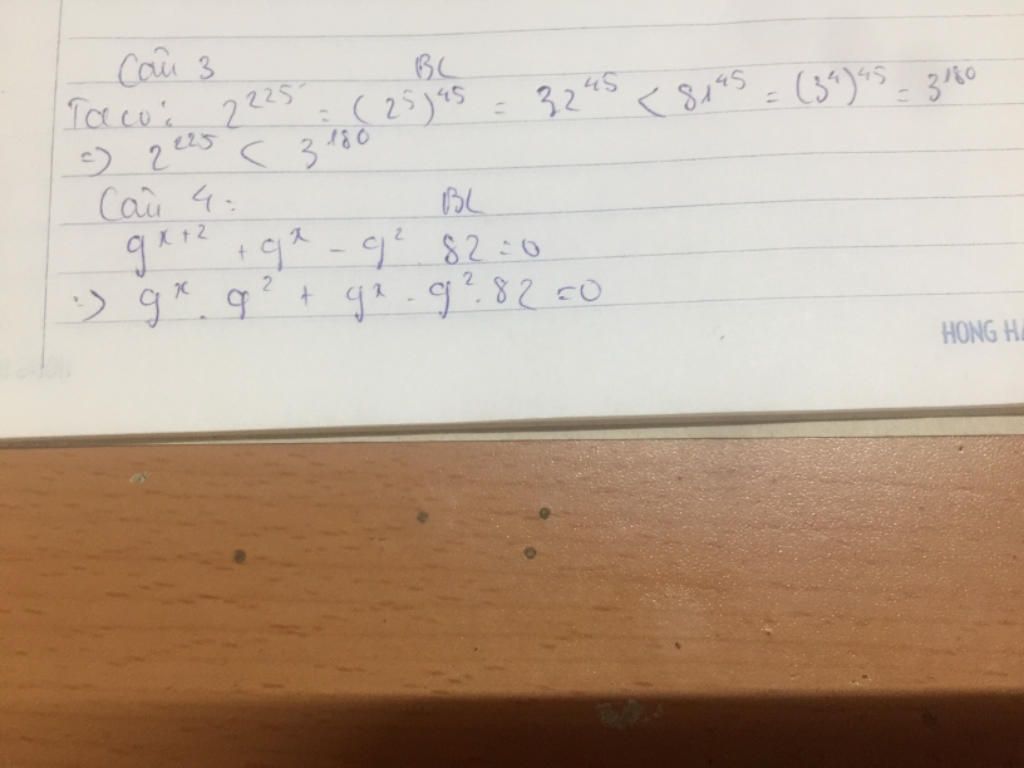 Câu 3 BL
Ta có: 2^225 = (2^5)^45 = 32^45 < 81^45 = (3^4)^45 = 3^180
=> 2^225 < 3^180
Câu 4: BL
9^x+2 + 9^x - 9^2 . 82 = 0
=> 9^x . 9^2 + 9^x - 9^2 . 82 = 0
HONG HA